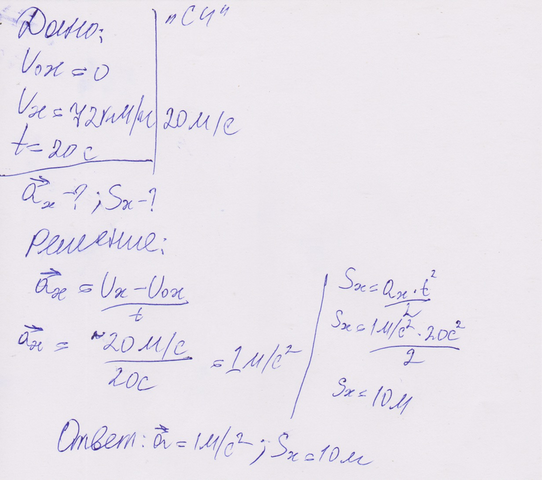 Дано: "СИ"
Vox = 0
Vx = 72 км/ч 20 м/с
t = 20с
a⃗x - ? ; Sx - ?
Решение:
a⃗x = Vx - Vox / t
a⃗x = 20 м/с / 20с = 1 м/с²
Sx = ax · t² / 2
Sx = 1 м/с² · 20с² / 2
Sx = 10м
Ответ: a⃗ = 1 м/с² ; Sx = 10м